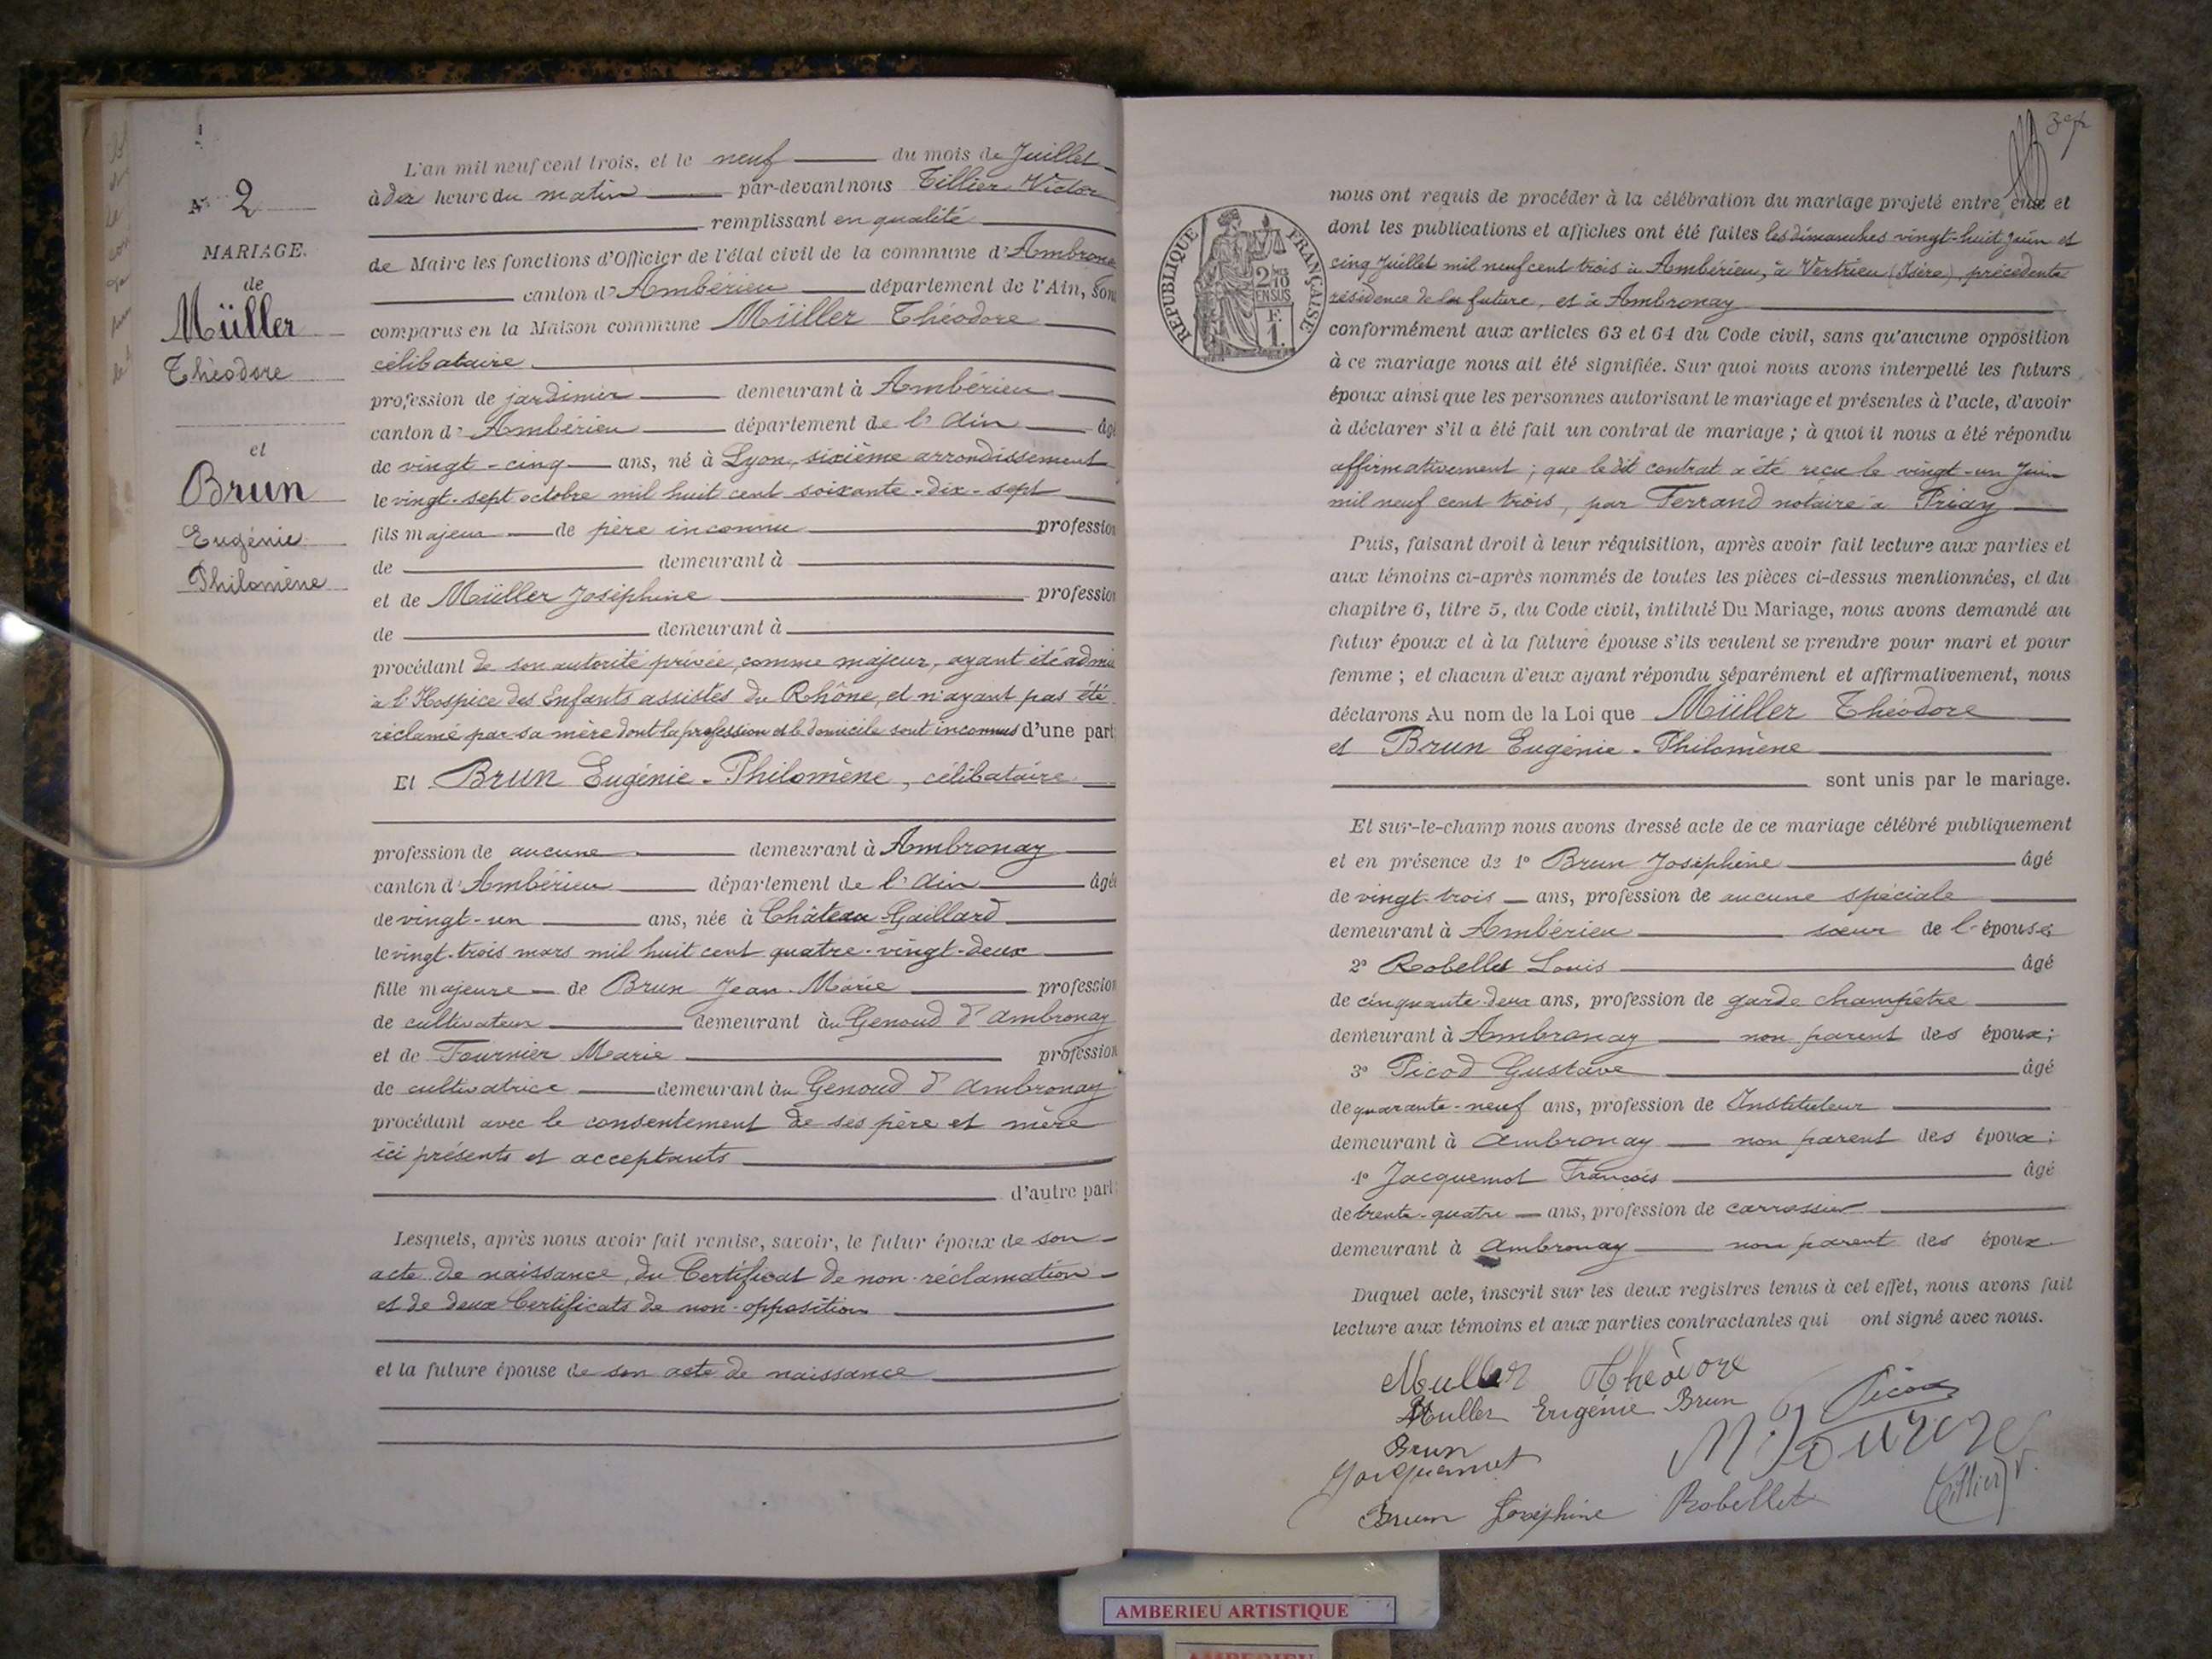 N° 2
MARIAGE.
de
Müller
Théodore
et
Brun
Eugénie
Philomène
L'an mil neuf cent trois, et le neuf du mois de Juillet
à dix heure du matin par-devant nous Tillier Victor
remplissant en qualité
de Maire les fonctions d'Officier de l'état civil de la commune d'Ambronay
canton d'Ambérieu département de l'Ain, sont
comparus en la Maison commune Müller Théodore
célibataire
profession de jardinier demeurant à Ambérieu
canton d'Ambérieu département de l'Ain âgé
de vingt-cinq ans, né à Lyon, sixième arrondissement
le vingt-sept octobre mil huit cent soixante-dix-sept
fils majeur de père inconnu profession
de demeurant à
et de Müller Joséphine profession
de demeurant à
procédant de son autorité privée, comme majeur, ayant été admis
à l'Hospice des Enfants assistés du Rhône, et n'ayant pas été
réclamé par sa mère dont la profession et le domicile sont inconnus d'une part;
Et Brun Eugénie-Philomène, célibataire
profession de aucune demeurant à Ambronay
canton d'Ambérieu département de l'Ain âgée
de vingt-un ans, née à Château-Gaillard
le vingt-trois mars mil huit cent quatre-vingt-deux
fille majeure de Brun Jean-Marie profession
de cultivateur demeurant au Genoud d'Ambronay
et de Tournier Marie profession
de cultivatrice demeurant au Genoud d'Ambronay
procédant avec le consentement de ses père et mère
ici présents et acceptants
d'autre part;
Lesquels, après nous avoir fait remise, savoir, le futur époux de son
acte de naissance, du Certificat de non-réclamation
et de deux Certificats de non-opposition
et la future épouse de son acte de naissance
nous ont requis de procéder à la célébration du mariage projeté entre eux et
dont les publications et affiches ont été faites les dimanches vingt-huit Juin et
cinq Juillet mil neuf cent trois à Ambérieu, à Vertrieu (Isère), précédente
résidence de la future, et à Ambronay
conformément aux articles 63 et 64 du Code civil, sans qu'aucune opposition
à ce mariage nous ait été signifiée. Sur quoi nous avons interpellé les futurs
époux ainsi que les personnes autorisant le mariage et présentes à l'acte, d'avoir
à déclarer s'il a été fait un contrat de mariage ; à quoi il nous a été répondu
affirmativement ; que ledit contrat a été reçu le vingt-un Juin
mil neuf cent trois, par Ferrand notaire à Priay
Puis, faisant droit à leur réquisition, après avoir fait lecture aux parties et
aux témoins ci-après nommés de toutes les pièces ci-dessus mentionnées, et du
chapitre 6, titre 5, du Code civil, intitulé Du Mariage, nous avons demandé au
futur époux et à la future épouse s'ils veulent se prendre pour mari et pour
femme ; et chacun d'eux ayant répondu séparément et affirmativement, nous
déclarons Au nom de la Loi que Müller Théodore
et Brun Eugénie-Philomène
sont unis par le mariage.
Et sur-le-champ nous avons dressé acte de ce mariage célébré publiquement
et en présence de 1° Brun Joséphine âgé
de vingt-trois ans, profession de aucune spéciale
demeurant à Ambérieu sœur de l'épouse;
2° Robellet Louis âgé
de cinquante-deux ans, profession de garde champêtre
demeurant à Ambronay non parent des époux;
3° Picod Gustave âgé
de quarante-neuf ans, profession de Instituteur
demeurant à Ambronay non parent des époux;
4° Jacquemot François âgé
de trente-quatre ans, profession de carrossier
demeurant à Ambronay non parent des époux.
Duquel acte, inscrit sur les deux registres tenus à cet effet, nous avons fait
lecture aux témoins et aux parties contractantes qui ont signé avec nous.
Muller Théodore
Muller Eugénie Brun
Picod
Brun
Jacquemot
Brun Joséphine Robellet Tillier V.
REPUBLIQUE FRANÇAISE
2/10 EN SUS
F.
1.
AMBERIEU ARTISTIQUE
AMBERIEU